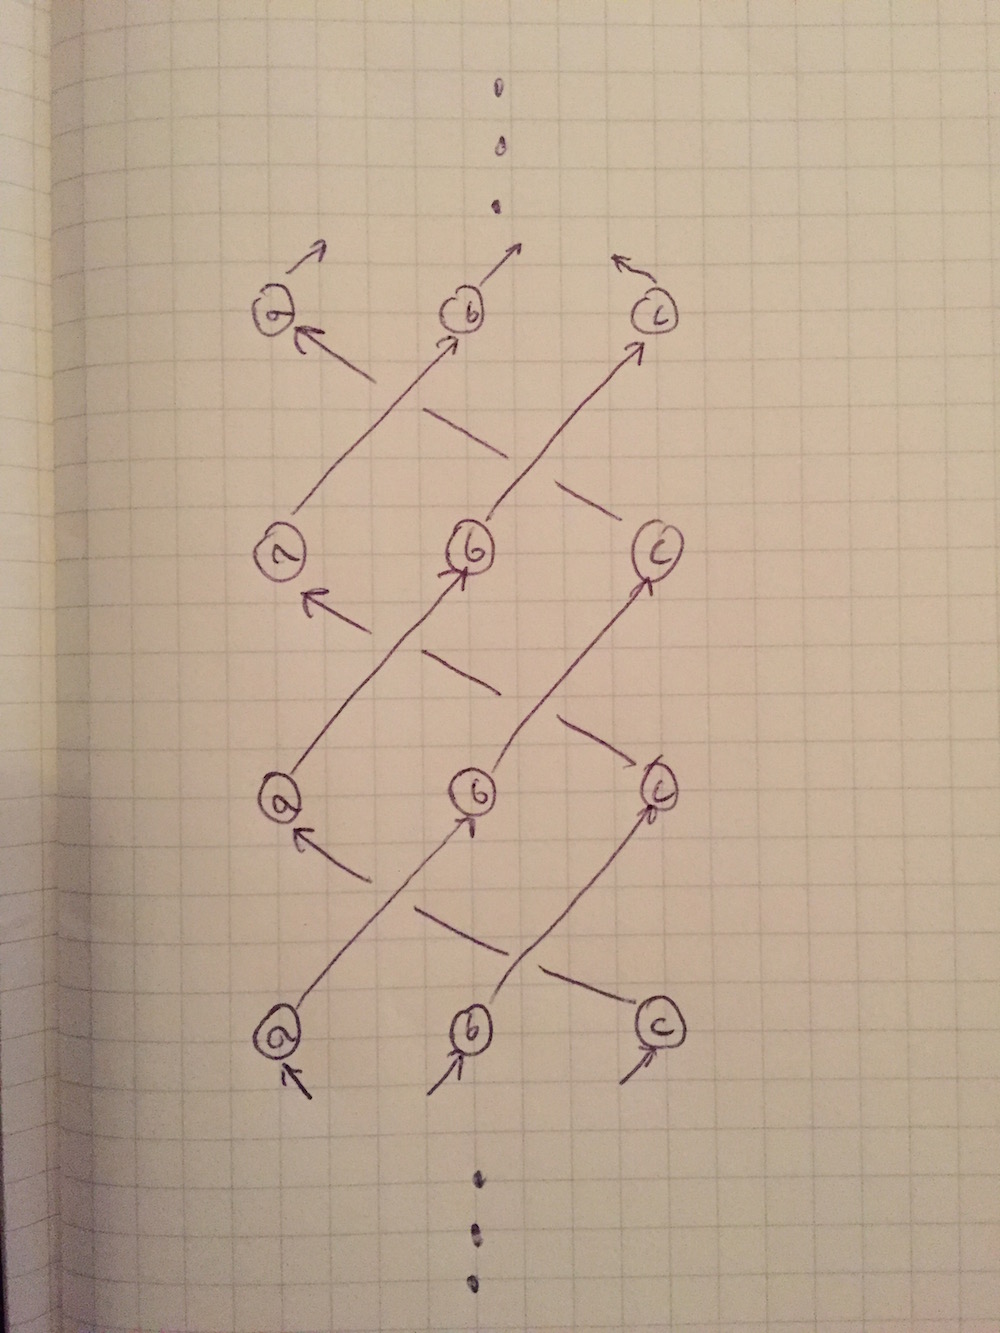 a b c
a b c
a b c
a b c